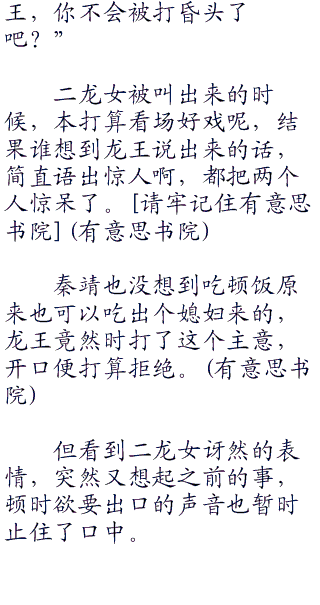 王，你不会被打昏头了
吧？”
二龙女被叫出来的时
候，本打算看场好戏呢，结
果谁想到龙王说出来的话，
简直语出惊人啊，都把两个
人惊呆了。[请牢记住有意思
书院](有意思书院)
秦靖也没想到吃顿饭原
来也可以吃出个媳妇来的，
龙王竟然时打了这个主意，
开口便打算拒绝。(有意思书
院)
但看到二龙女讶然的表
情，突然又想起之前的事，
顿时欲要出口的声音也暂时
止住了口中。